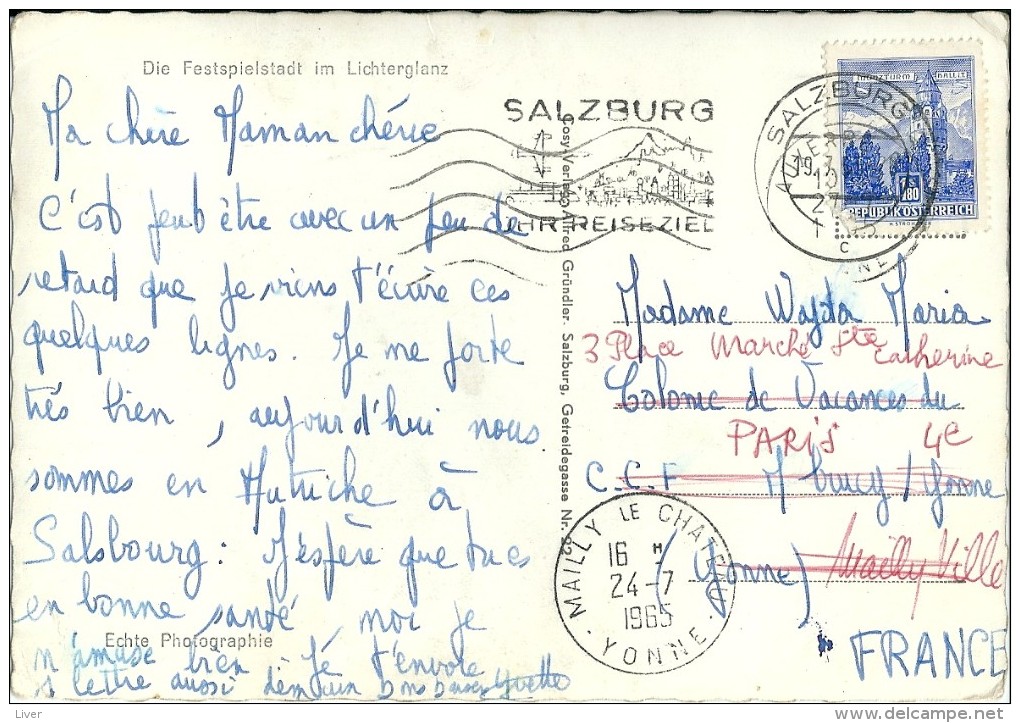 Die Festspielstadt im Lichterglanz
Ma chère Maman chérie
C'est peut être avec un peu de
retard que je viens t'écrire ces
quelques lignes. Je me porte
très bien, aujourd'hui nous
sommes en Autriche à
Salsbourg : J'espère que tu es
en bonne santé, moi je
Echte Photographie
m'amuse bien Je t'envoie
1 lettre aussi demain Bons baisers Yvette
Cosy-Verlag Alfred Gründler. Salzburg, Getreidegasse Nr. 22
SALZBURG
IHR REISEZIEL
SALZBURG
MÜNZTURM HALL I. T.
1 S 80
REPUBLIK ÖSTERREICH
Madame Wajda Maria
3 Place Marché Ste Catherine
Colonie de Vacances du
PARIS 4e
C.C.F Yonne
(Yonne) Mailly Ville
MAILLY LE CHATEAU
16 H
24-7
1965
YONNE
FRANCE
Liver
http://www.delcampe.net